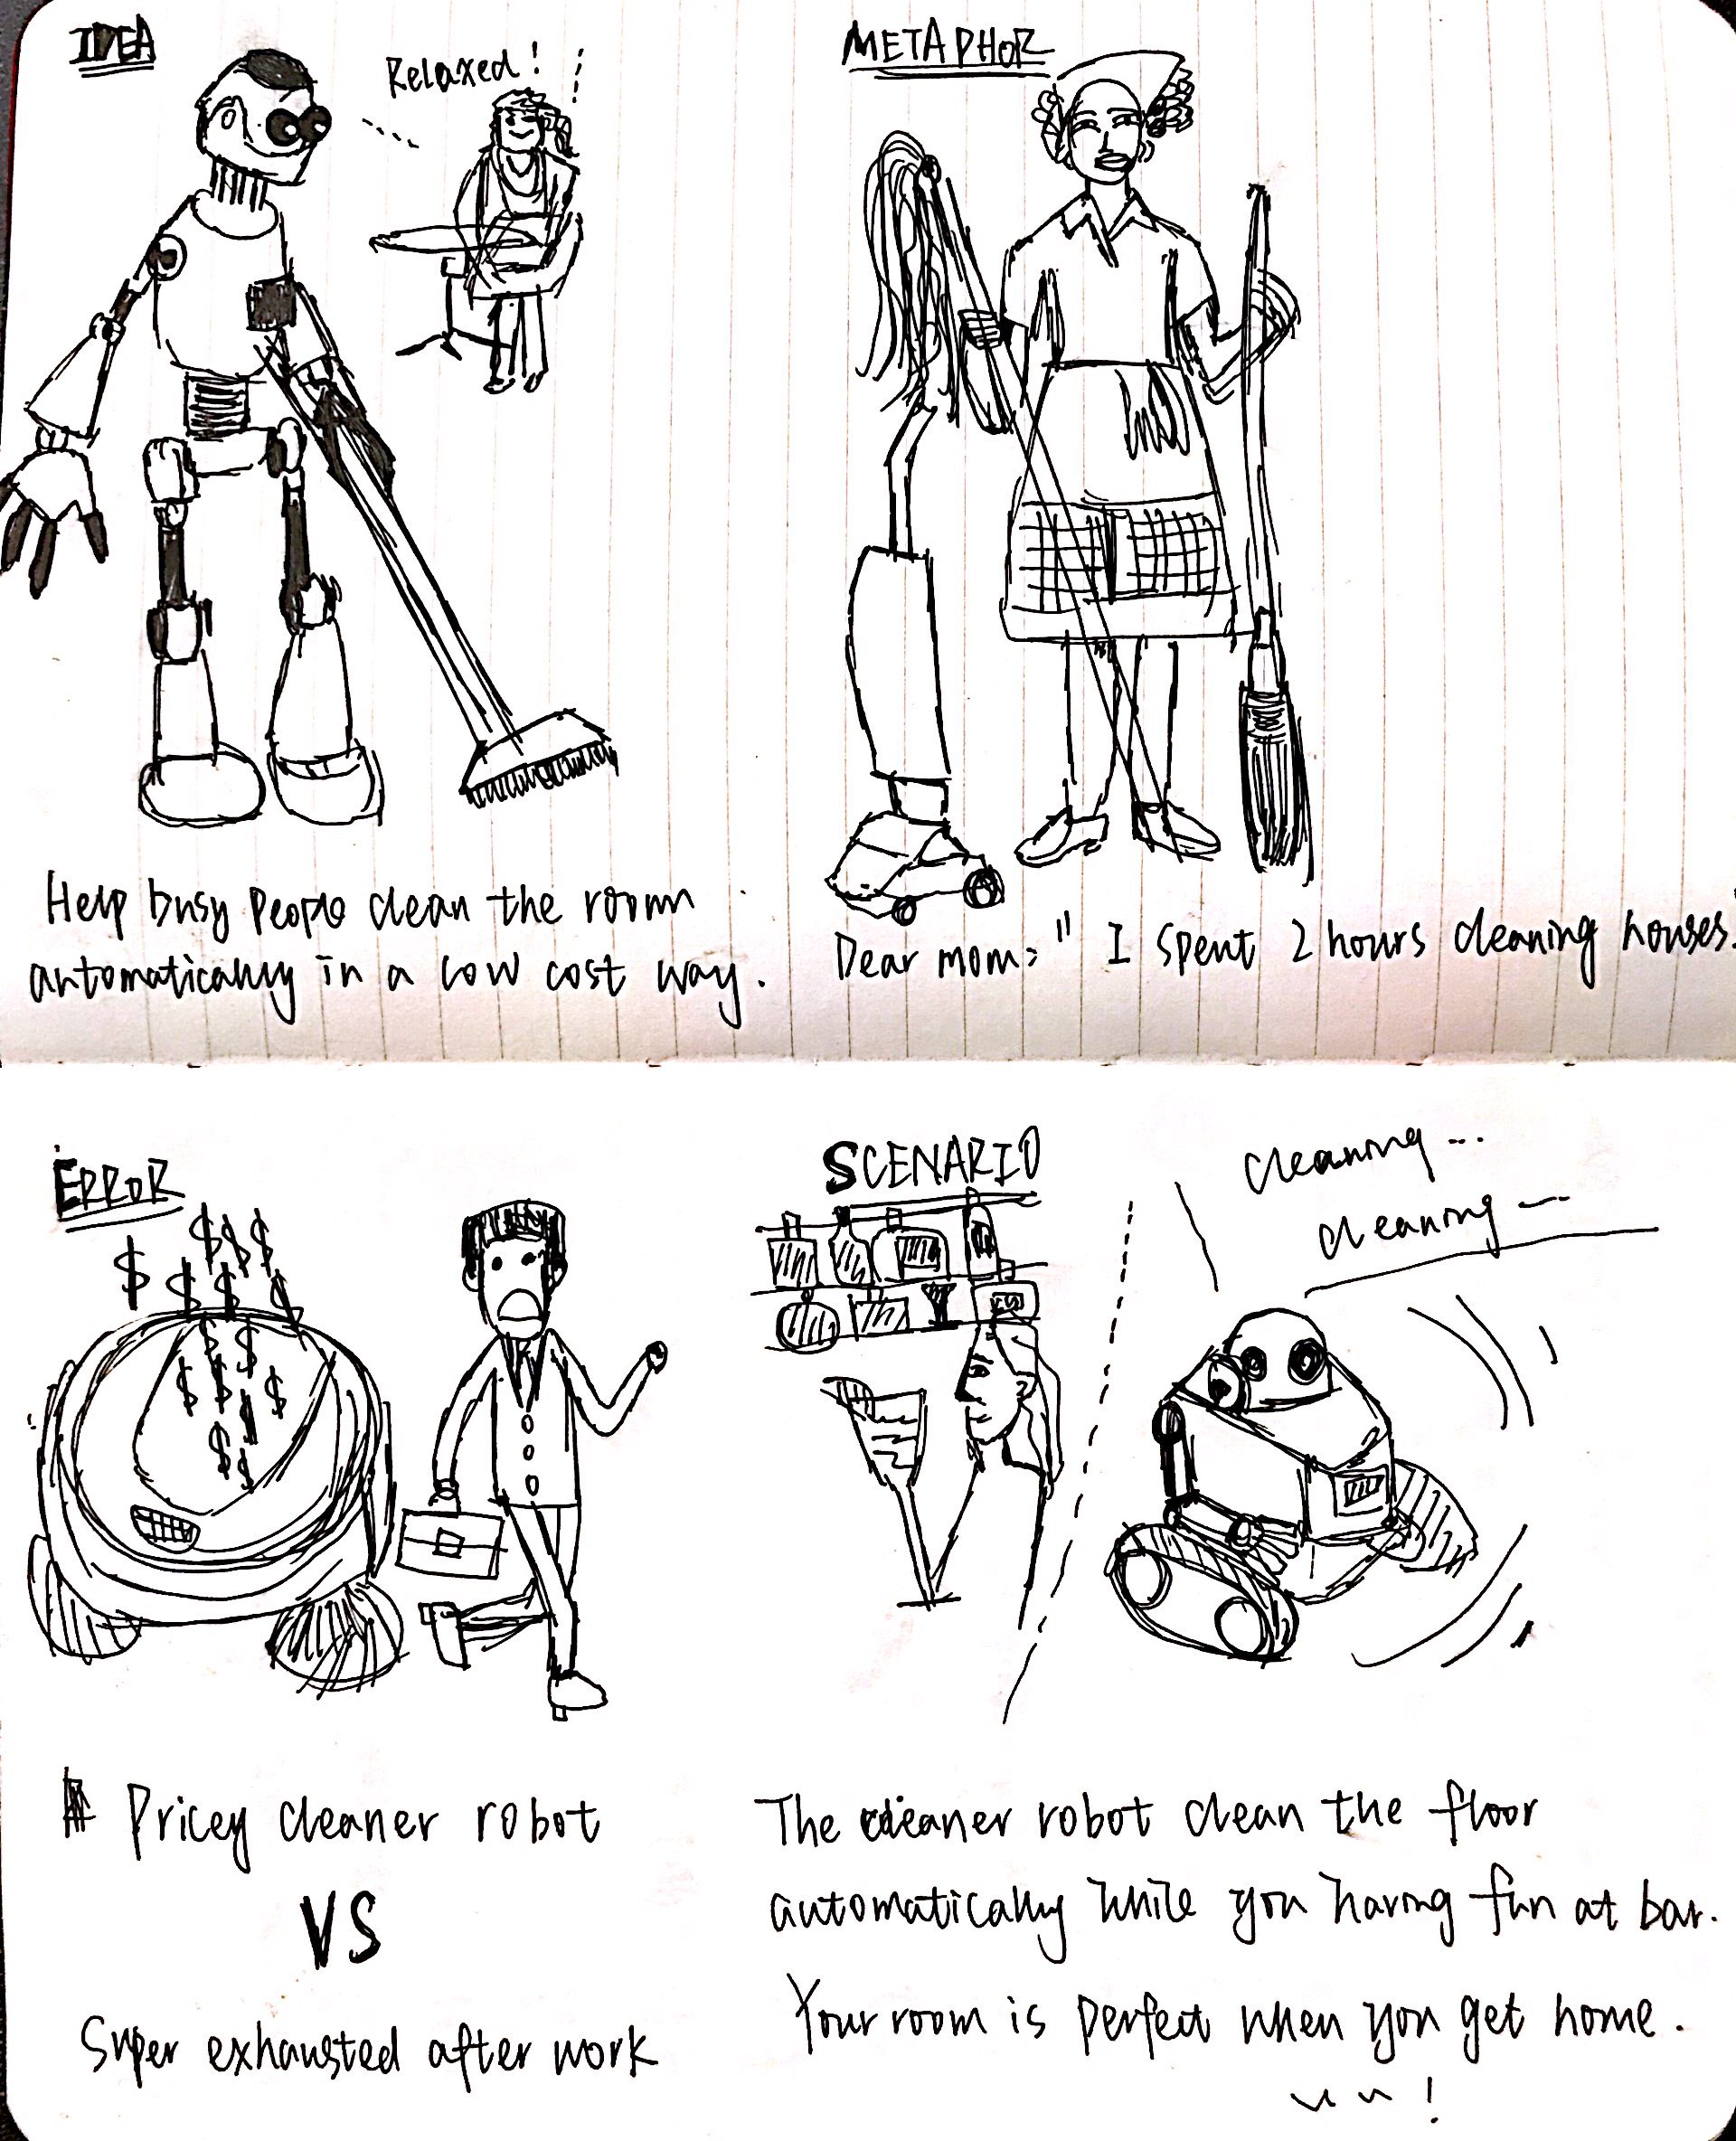 IDEA
Relaxed!
Help busy people clean the room
automatically in a low cost way.
METAPHOR
Dear mom: " I spent 2 hours cleaning houses.
ERROR
$ $ $ $ $ $ $
$ $ $ $ $ $ $ $ $
Pricey cleaner robot
VS
Super exhausted after work
SCENARIO
cleaning ...
cleaning ---
The cleaner robot clean the floor
automatically while you having fun at bar.
Your room is perfect when you get home.
!